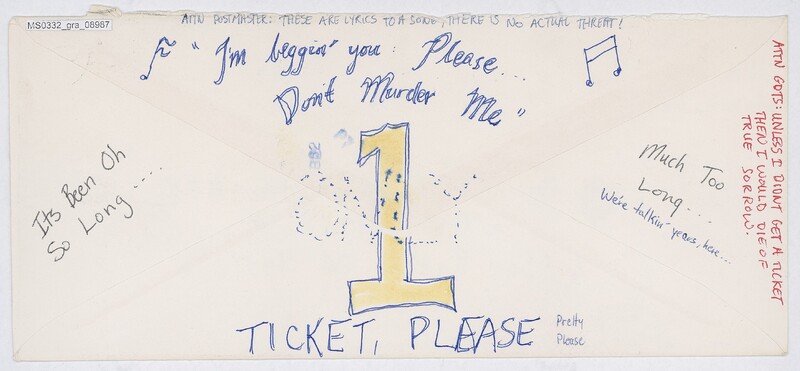 MS0332_gra_08987
ATTN POSTMASTER: THESE ARE LYRICS TO A SONG, THERE IS NO ACTUAL THREAT!
"I'm beggin' you: Please...
Don't Murder Me"
Its Been Oh
So Long....
1
Much Too
Long...
We're talkin' years, here...
ATTN GDTS: UNLESS I DIDNT GET A TICKET
THEN I WOULD DIE OF
TRUE SORROW.
TICKET, PLEASE
Pretty
Please